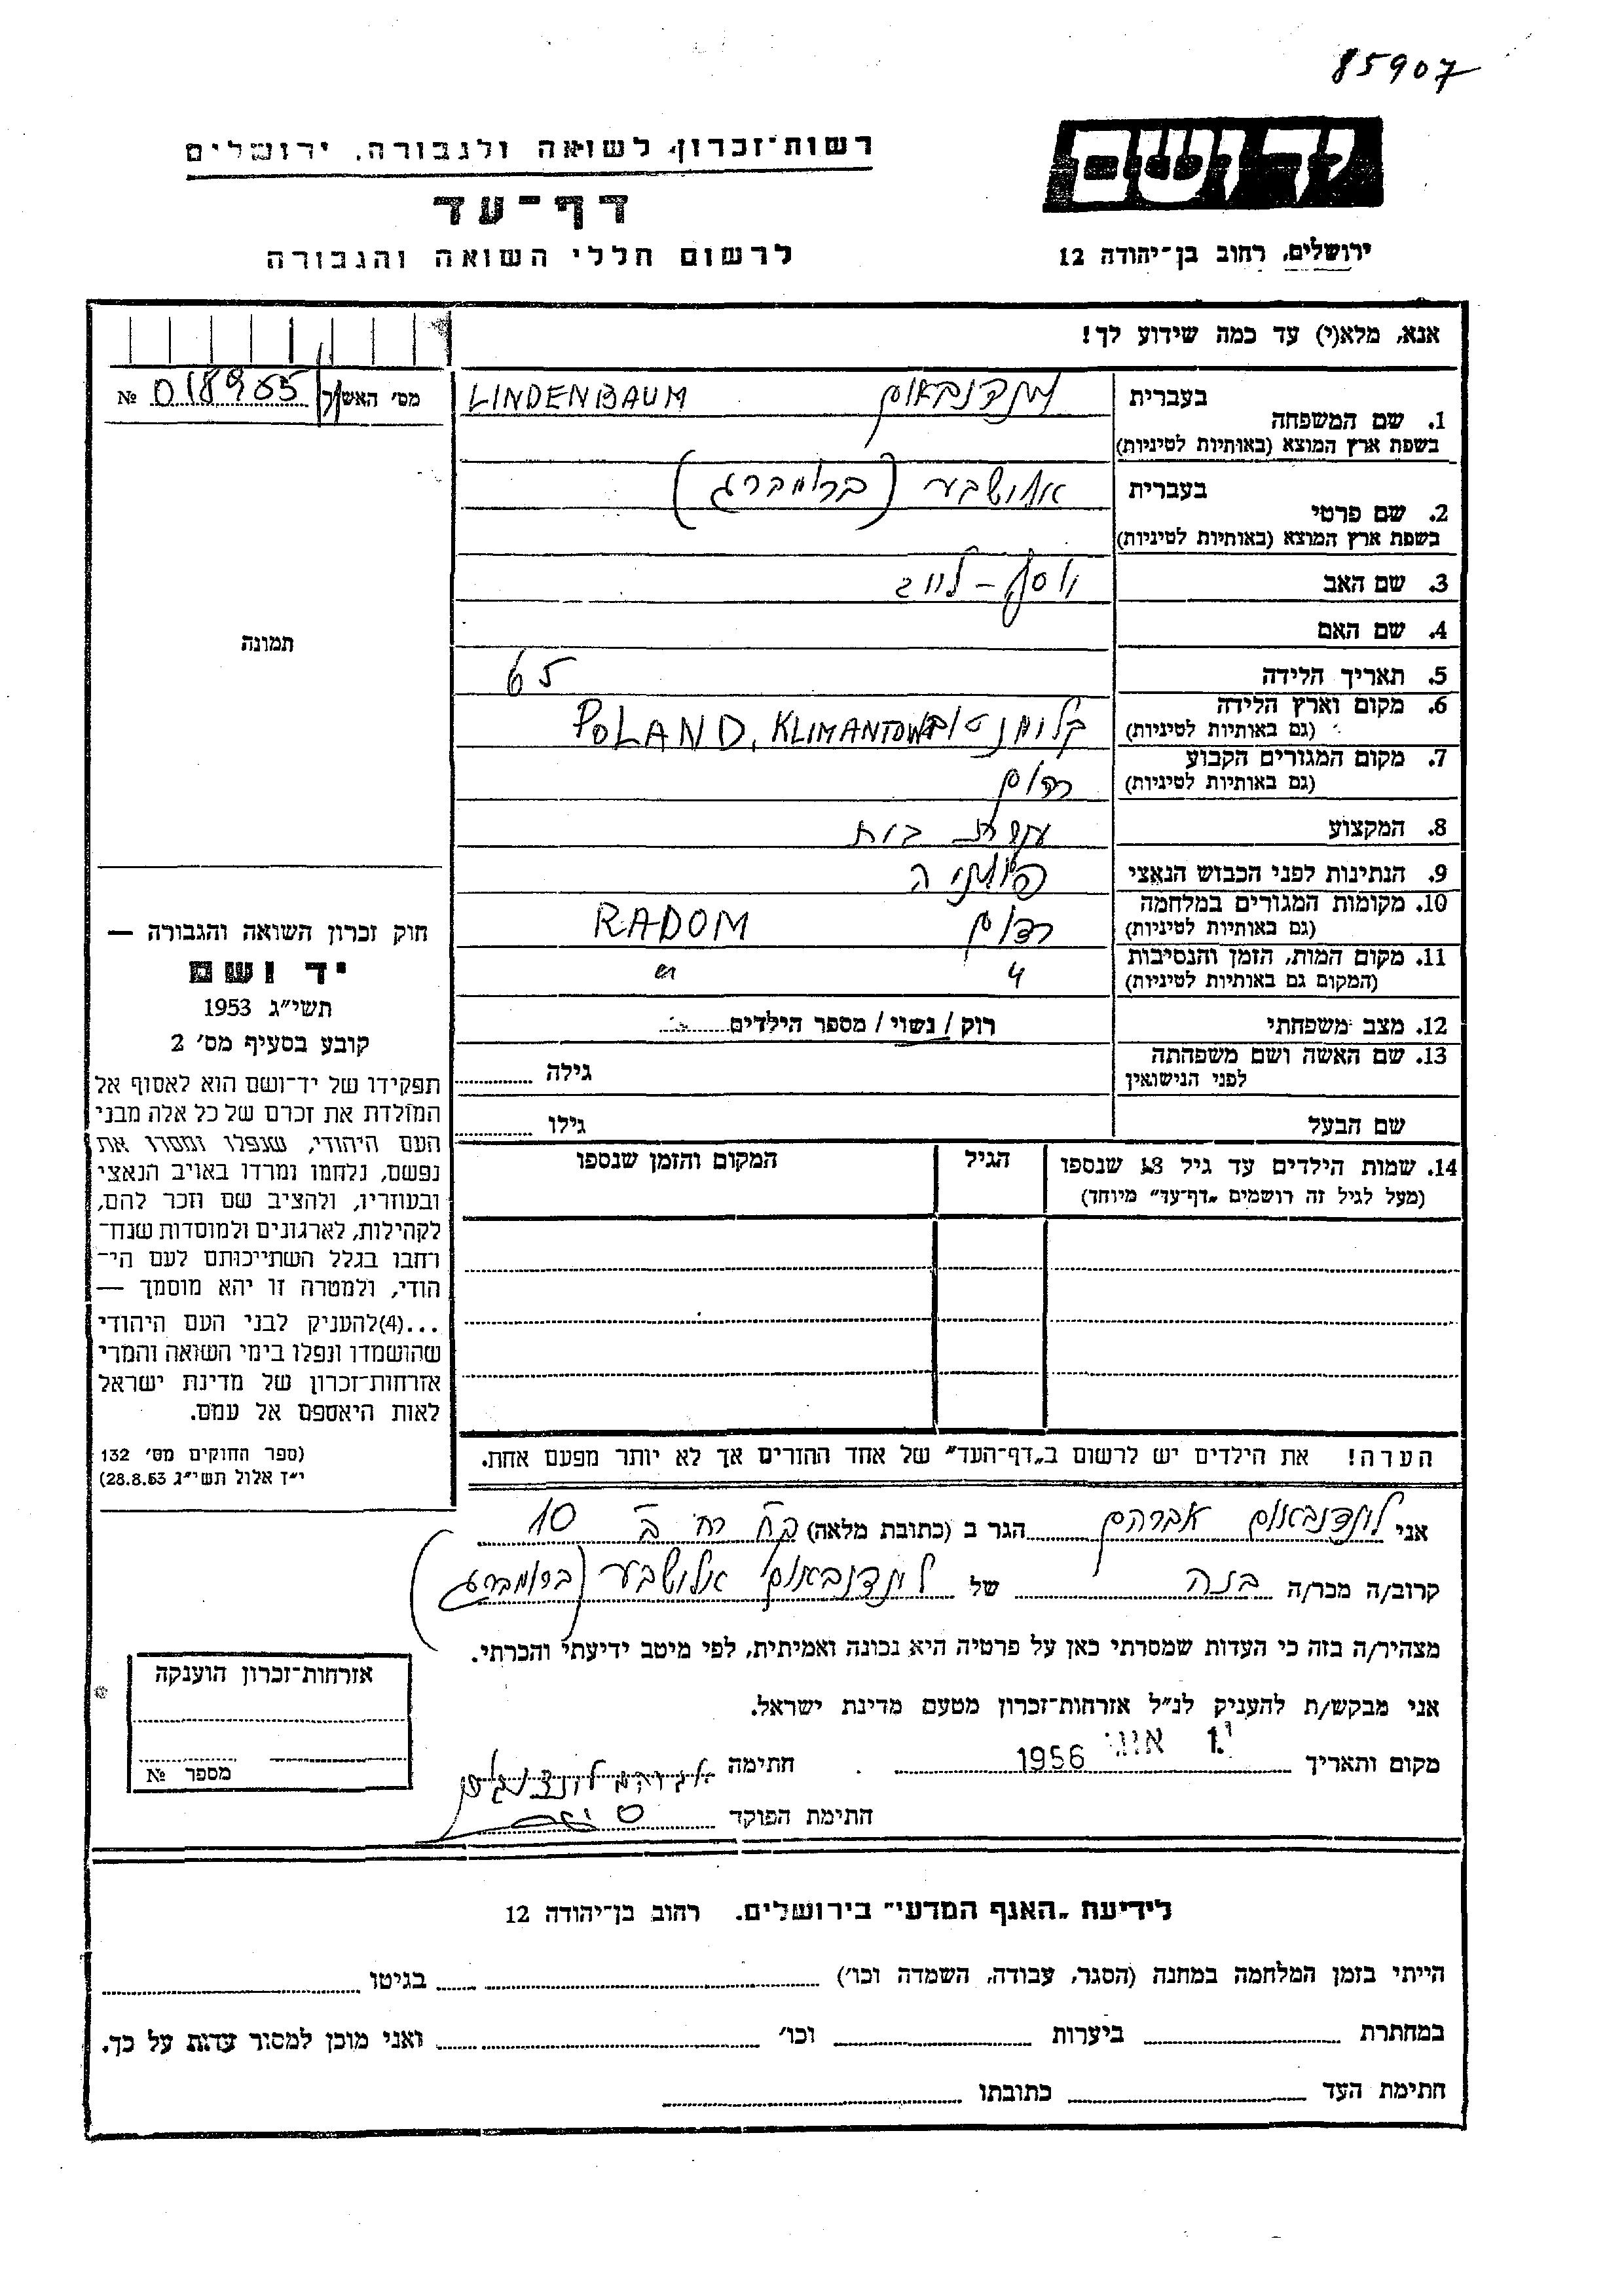 85907
יד ושם
ירושלים, רחוב בן־יהודה 12
רשות־זכרון לשואה ולגבורה, ירושלים
דף־עד
לרשום חללי השואה והגבורה
אנא, מלא(י) עד כמה שידוע לך!
מס׳ האשה № 018965
1. שם המשפחה בעברית לינדנבאום LINDENBAUM
בשפת ארץ המוצא (באותיות לטיניות)
2. שם פרטי בעברית אלישבע (ברומברג)
בשפת ארץ המוצא (באותיות לטיניות)
3. שם האב יוסף - לייב
4. שם האם
5. תאריך הלידה 65
6. מקום וארץ הלידה קלימנטוב POLAND, KLIMANTOW
(גם באותיות לטיניות)
7. מקום המגורים הקבוע רדום
(גם באותיות לטיניות)
8. המקצוע עקרת בית
9. הנתינות לפני הכבוש הנאצי פולניה
10. מקומות המגורים במלחמה רדום RADOM
(גם באותיות לטיניות)
11. מקום המות, הזמן והנסיבות
(המקום גם באותיות לטיניות)
12. מצב משפחתי רוק / נשוי / מספר הילדים
13. שם האשה ושם משפחתה גילה
לפני הנישואין
שם הבעל גילו
14. שמות הילדים עד גיל 18 שנספו הגיל המקום והזמן שנספו
(מעל לגיל זה רושמים „דף־עד״ מיוחד)
הערה! את הילדים יש לרשום ב„דף־העד״ של אחד ההורים אך לא יותר מפעם אחת.
תמונה
חוק זכרון השואה והגבורה —
יד ושם
תשי״ג 1953
קובע בסעיף מס׳ 2
תפקידו של יד־ושם הוא לאסוף אל
המולדת את זכרם של כל אלה מבני
העם היהודי, שנפלו ומסרו את
נפשם, נלחמו ומרדו באויב הנאצי
ובעוזריו, ולהציב שם וזכר להם,
לקהילות, לארגונים ולמוסדות שנח־
רחבו בגלל השתייכותם לעם הי־
הודי, ולמטרה זו יהא מוסמך —
...(4)להעניק לבני העם היהודי
שהושמדו ונפלו בימי השואה והמרי
אזרחות־זכרון של מדינת ישראל
לאות היאספם אל עמם.
(ספר החוקים מס׳ 132
י״ז אלול תשי״ג 28.8.53)
אני לינדנבאום אברהם הגר ב (כתובת מלאה) 10
קרוב/ה מכר/ה בנה של לינדנבאום אלישבע (ברומברג)
מצהיר/ה בזה כי העדות שמסרתי כאן על פרטיה היא נכונה ואמיתית, לפי מיטב ידיעתי והכרתי.
אני מבקש/ת להעניק לנ״ל אזרחות־זכרון מטעם מדינת ישראל.
מקום ותאריך 1956 חתימה
חתימת הפוקד
אזרחות־זכרון הוענקה
מספר №
לידיעת „האגף המדעי״ בירושלים. רחוב בן־יהודה 12
הייתי בזמן המלחמה במחנה (הסגר, עבודה, השמדה וכו׳) בגיטו
במחתרת ביערות וכו׳ ואני מוכן למסור עדות על כך.
חתימת העד כתובתו